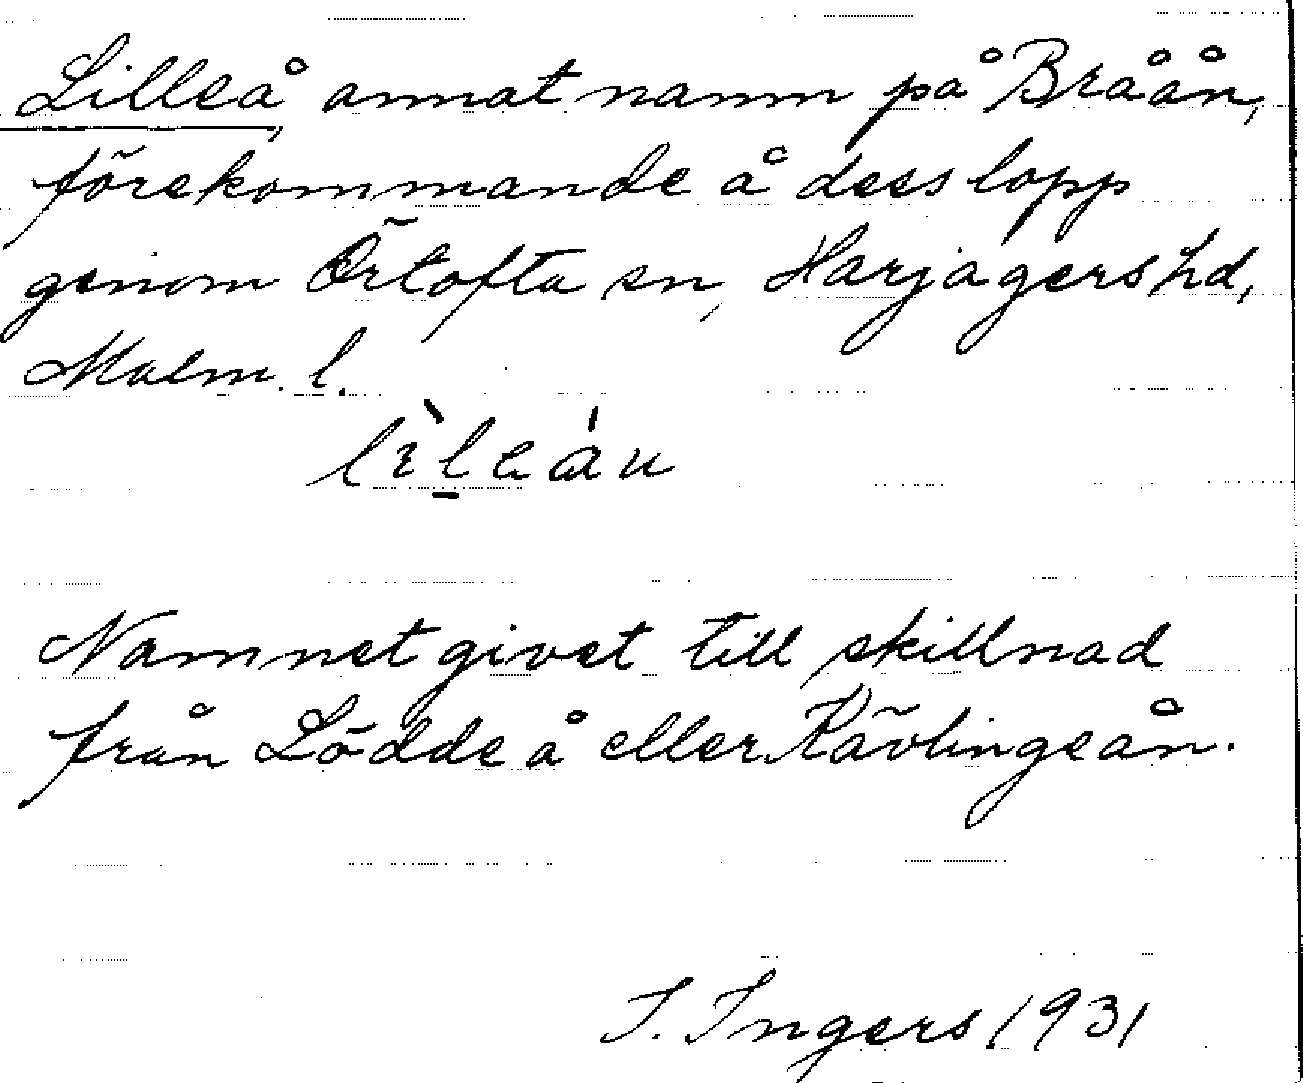 Lilleå, annat namn på Bråån,
förekommande å dess lopp
genom Örtofta sn, Harjagers hd,
Malm. l.
lìleáu
Namnet givet till skillnad
från Lödde å eller Kävlingeån.
I. Ingers 1931